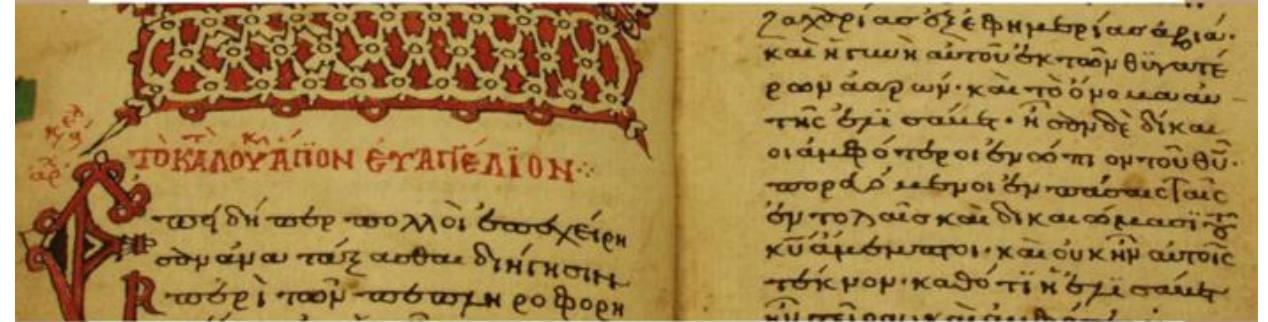 ΤΟ ΚΑ^τ ΛΟΥ^κ ἍΓΙΟΝ ΕΥΑΓΓΕΛΙΟΝ
Ἐπειδήπερ πολλοὶ ἐπεχείρη
σαν ἀνατάξασθαι διήγησιν
περὶ τῶν πεπληροφορη
ζαχαρίας ἐξ ἐφημερίας ἀβιά·
καὶ ἡ γυνὴ αὐτοῦ ἐκ τῶν θυγατέ
ρων ἀαρών· καὶ τὸ ὄνομα αὐ
τῆς ἐλισάβετ· ἦσαν δὲ δίκαι
οι ἀμφότεροι ἐνώπιον τοῦ θῦ·
πορευόμενοι ἐν πάσαις ταῖς
ἐντολαῖς καὶ δικαιώμασϊ τοῦ
κῦ ἄμεμπτοι· καὶ οὐκ ἦν αὐτοῖς
τέκνον· καθότϊ ἡ ἐλισάβετ